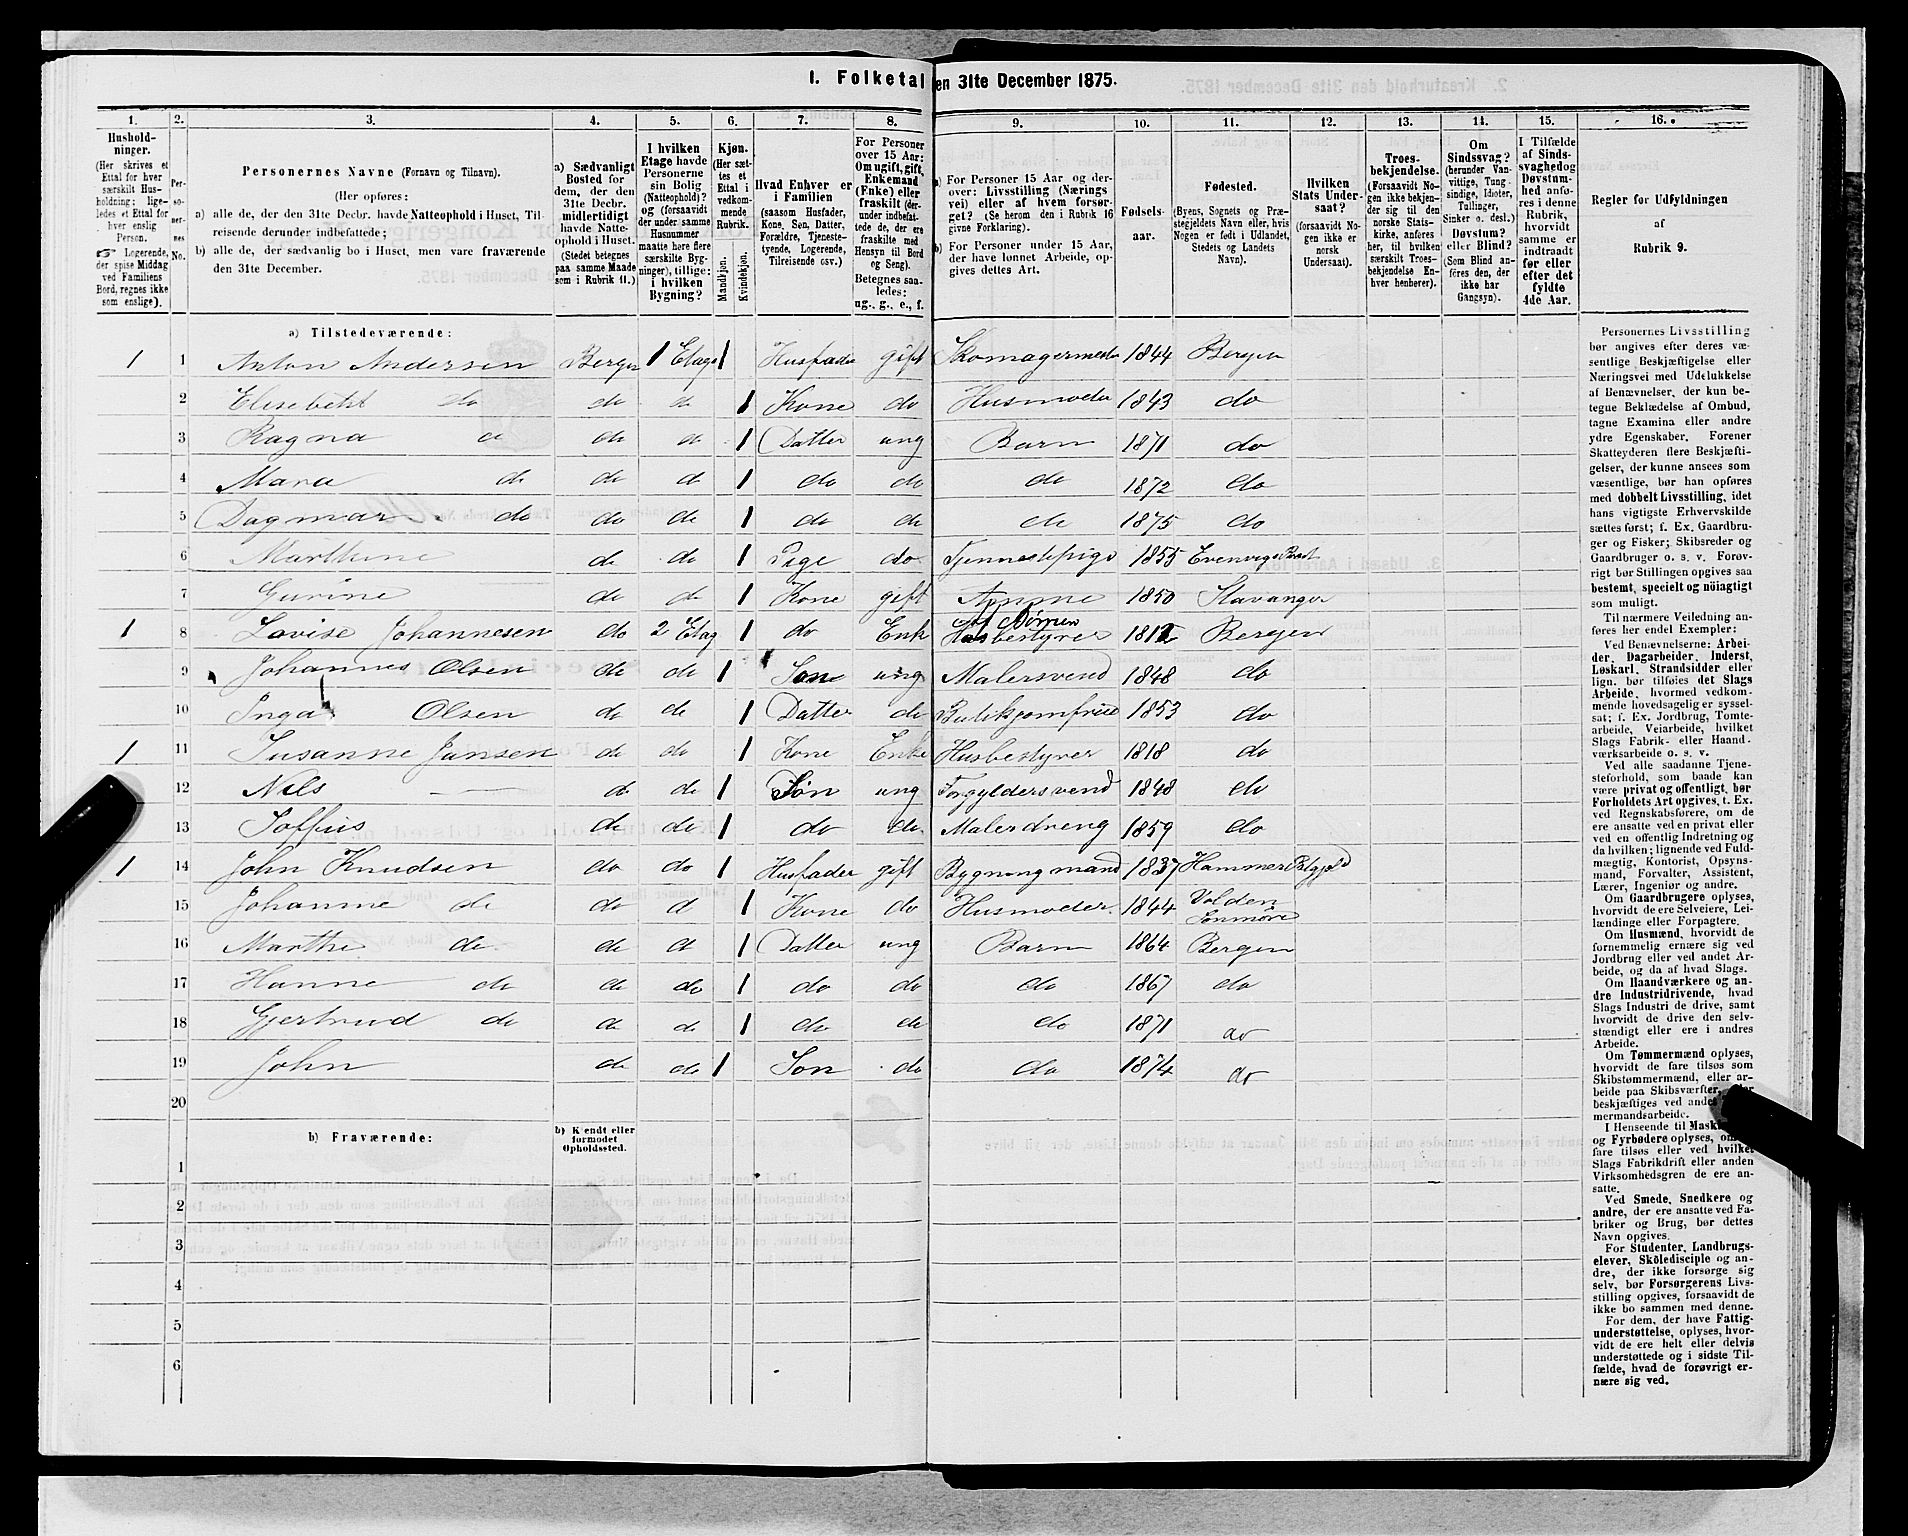 1. Folketal den 31te December 1875.
1. 2. 3. 4. 5. 6. 7. 8. 9. 10. 11. 12. 13. 14. 15. 16.
Hushold-
ninger.
(Her skrives et
Ettal for hver
særskilt Hus-
holdning: lige-
ledes et Ettal for
hver enslig
Person.
Logerende,
der spise Middag
ved Familiens
Bord, regnes ikke
som enslige).
Per-
so-
ner-
nes
No.
Personernes Navne (Fornavn og Tilnavn).
(Her opføres:
a) alle de, der den 31te Decbr. havde Natteophold i Huset, Til-
reisende derunder indbefattede;
b) alle de, der sædvanlig bo i Huset, men vare fraværende
den 31te December.
a) Sædvanligt
Bosted for
dem, der den
31te Decbr.
midlertidigt
havde Natte-
ophold i Huset.
(Stedet betegnes
paa samme Maade
som i Rubrik 11.)
I hvilken
Etage havde
Personerne
sin Bolig
(Natteophold)?
og (forsaavidt
der under samme
Husnummer
maatte høre flere
særskilte Byg-
ninger), tillige:
i hvilken
Bygning?
Kjøn.
(Her sæt-
tes et
Ettal i
vedkom-
mende
Rubrik.
Mandkjøn.
Kvindekjøn.
Hvad Enhver er
i Familien
(saasom Husfader,
Kone, Søn, Datter,
Forældre, Tjeneste-
tyende, Logerende,
Tilreisende osv.)
For Personer
over 15 Aar:
Om ugift, gift,
Enkemand
(Enke) eller
fraskilt (der-
under indbefat-
tede de, der ere
fraskilte med
Hensyn til Bord
og Seng).
Betegnes saa-
ledes:
ug., g., e., f.
a) For Personer 15 Aar og der-
over: Livsstilling (Nærings
vei) eller af hvem forsør-
get? (Se herom den i Rubrik 16
givne Forklaring).
b) For Personer under 15 Aar,
der have lønnet Arbeide, op-
gives dettes Art.
Fødsels-
aar.
Fødested.
(Byens, Sognets og Præ-
stegjeldets Navn eller, hvis
Nogen er født i Udlandet,
Stedets og Landets
Navn).
Hvilken
Stats Under-
saat?
(forsaavidt No-
gen ikke er
norsk
Undersaat).
Troes-
bekjendelse.
(Forsaavidt No-
gen ikke bekjen-
der sig til den
norske Stats-
kirke, anføres
her, til hvilken
særskilt Troes-
bekjendelse En-
hver henhører).
Om
Sindssvag?
(herunder Van-
vittige, Tung-
sindige, Idioter,
Tullinger,
Sinker o. desl.)
Døvstum?
eller Blind?
(Som Blind an-
føres den, der
ikke har
Gangsyn).
I Tilfælde
af Sinds-
svaghed og
Døvstum-
hed anfø-
res i denne
Rubrik,
hvorvidt
samme er
indtraadt
før eller
efter det
fyldte
4de Aar.
Regler for Udfyldningen
af
Rubrik 9.
a) Tilstedeværende:
1 1 Anton Andersen Bergen 1 Etage 1 Husfader gift Skomagermester 1844 Bergen
2 Elisebeht do do do 1 Kone do Husmoder 1843 do
3 Ragna do do do 1 Datter ung Barn 1871 do
4 Mara do do do 1 do do do 1872 do
5 Dagmar do do do 1 do do do 1875 do
6 Marthine do do 1 Pige do Tjennestepige 1855 Evenvigs
7 Gurine do do 1 Kone gift Amme 1850 Stavanger
1 8 Lovise Johannesen do 2 Etag 1 do Enk Husbestyrer 1812 Bergen
9 Johannes Olsen do do 1 Søn ung Malersvend 1848 do
10 Inga Olsen do do 1 Datter do Butiksjomfrue 1853 do
1 11 Susanne Jansen do do 1 Kone Enke Husbestyrer 1818 do
12 Nils — do do 1 Søn ung Forgyldersvend 1848 do
13 Soffus do do 1 do do Malerdreng 1859 do
1 14 John Knudsen do do 1 Husfader gift Bygningmand 1837 Hammer
15 Johanne do do do 1 Kone do Husmoder 1844 Volden
Sønmøre
16 Marthe do do do 1 Datter ung Barn 1864 Bergen
17 Hanne do do do 1 do do do 1867 do
18 Gjertrud do do do 1 do do do 1871 do
19 John do do 1 Søn do do 1874 do
20
b) Fraværende:
b) Kjendt eller
formodet
Opholdssted.
1
2
3
4
5
6
Personernes Livsstilling
bør angives efter deres væ-
sentlige Beskjæftigelse eller
Næringsvei med Udelukkelse
af Benævnelser, der kun be-
tegne Beklædelse af Ombud,
tagne Examina eller andre
ydre Egenskaber. Forener
Skatteyderen flere Beskjæfti-
gelser, der kunne ansees som
væsentlige, bør han opføres
med dobbelt Livsstilling, idet
hans vigtigste Erhvervskilde
sættes først; f. Ex. Gaardbru-
ger og Fisker; Skibsreder og
Gaardbruger o. s. v. Forøv-
rigt bør Stillingen opgives saa
bestemt, specielt og nöiagtigt
som muligt.
Til nærmere Veiledning an-
føres her endel Exempler:
Ved Benævnelserne: Arbei-
der, Dagarbeider, Inderst,
Løskarl, Strandsidder eller
lign. bør tilføies det Slags
Arbeide, hvormed vedkom-
mende hovedsagelig er syssel-
sat; f. Ex. Jordbrug, Tomte-
arbeide, Veiarbeide, hvilket
Slags Fabrik- eller Haand-
værksarbeide o. s. v.
Ved alle saadanne Tjene-
steforhold, som baade kan
være privat og offentligt, bør
Forholdets Art opgives, t. Ex.
ved Regnskabsførere, om de
ere ansatte ved en privat eller
ved en offentlig Indretning og
da hvilken; lignende ved Fuld-
mægtig, Kontorist, Opsyns-
mand, Forvalter, Assistent,
Lærer, Ingeniør og andre.
Om Gaardbrugere oplyses,
hvorvidt de ere Selveiere, Lei-
lændinge eller Forpagtere.
Om Husmænd, hvorvidt de
fornemmelig ernære sig ved
Jordbrug eller ved andet Ar-
beide, og da af hvad Slags.
Om Haandværkere og an-
dre Industridrivende, hvad
Slags Industri de drive, samt
hvorvidt de drive den selv-
stændigt eller ere i andres
Arbeide.
Om Tømmermænd oplyses,
hvorvidt de fare tilsøs som
Skibstømmermænd, eller ar-
beide paa Skibsværfter,
beskjæftiges ved
mermandsarbeide.
I Henseende til
og Fyrbødere oplyses,
fare tilsøs eller ved hvilket
Slags Fabrikdrift eller anden
Virksomhedsgren de ere an-
satte.
Ved Smede, Snedkere og
andre, der ere ansatte ved Fa-
briker og Brug, bør dettes
Navn opgives.
For Studenter, Landbrugs-
elever, Skoledisciple og an-
dre, der ikke forsørge sig
selv, bør Forsørgerens Livs-
stilling opgives, forsaavidt de
ikke bo sammen med denne.
For dem, der have Fattig-
understøttelse, oplyses, hvor-
vidt de ere helt eller delvis
understøttede og i sidste Til-
fælde, hvad de forøvrigt er-
nære sig ved.